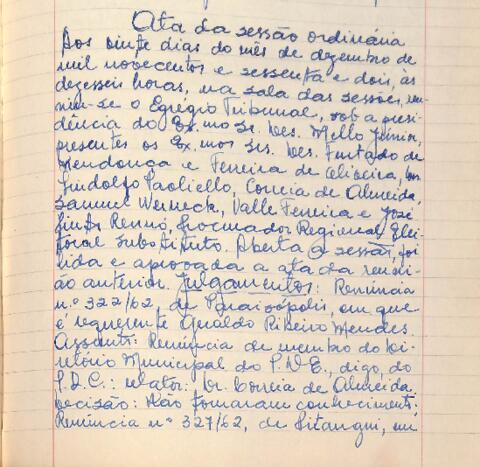 Ata da sessão ordinária
Aos vinte dias do mês de dezembro de
mil novecentos e sessenta e dois, às
dezesseis horas, na sala das sessões, reu-
niu-se o Egrégio Tribunal, sob a presi-
dência do Ex.mo Sr. Des. Mello Júnior,
presentes os Ex.mos Srs. Des. Furtado de
Mendonça e Ferreira de Oliveira,
Lindolfo Paoliello, Correia de Almeida,
Samuel Werneck, Valle Ferreira e José
Rennó, Procurador Regional Elei-
toral Substituto. Aberta a sessão, foi
lida e aprovada a ata da reuni-
ão anterior. Julgamentos: Renúncia
n.º 322/62, de Paraisópolis, em que
é requerente Geraldo Ribeiro Mendes.
Assunto: Renúncia de membro do Di-
retório Municipal do P.D.E., digo, do
P.D.C.: relator: Dr. Correia de Almeida.
Decisão: Não tomaram conhecimento;
Renúncia nº 327/62, de Pitangui, em